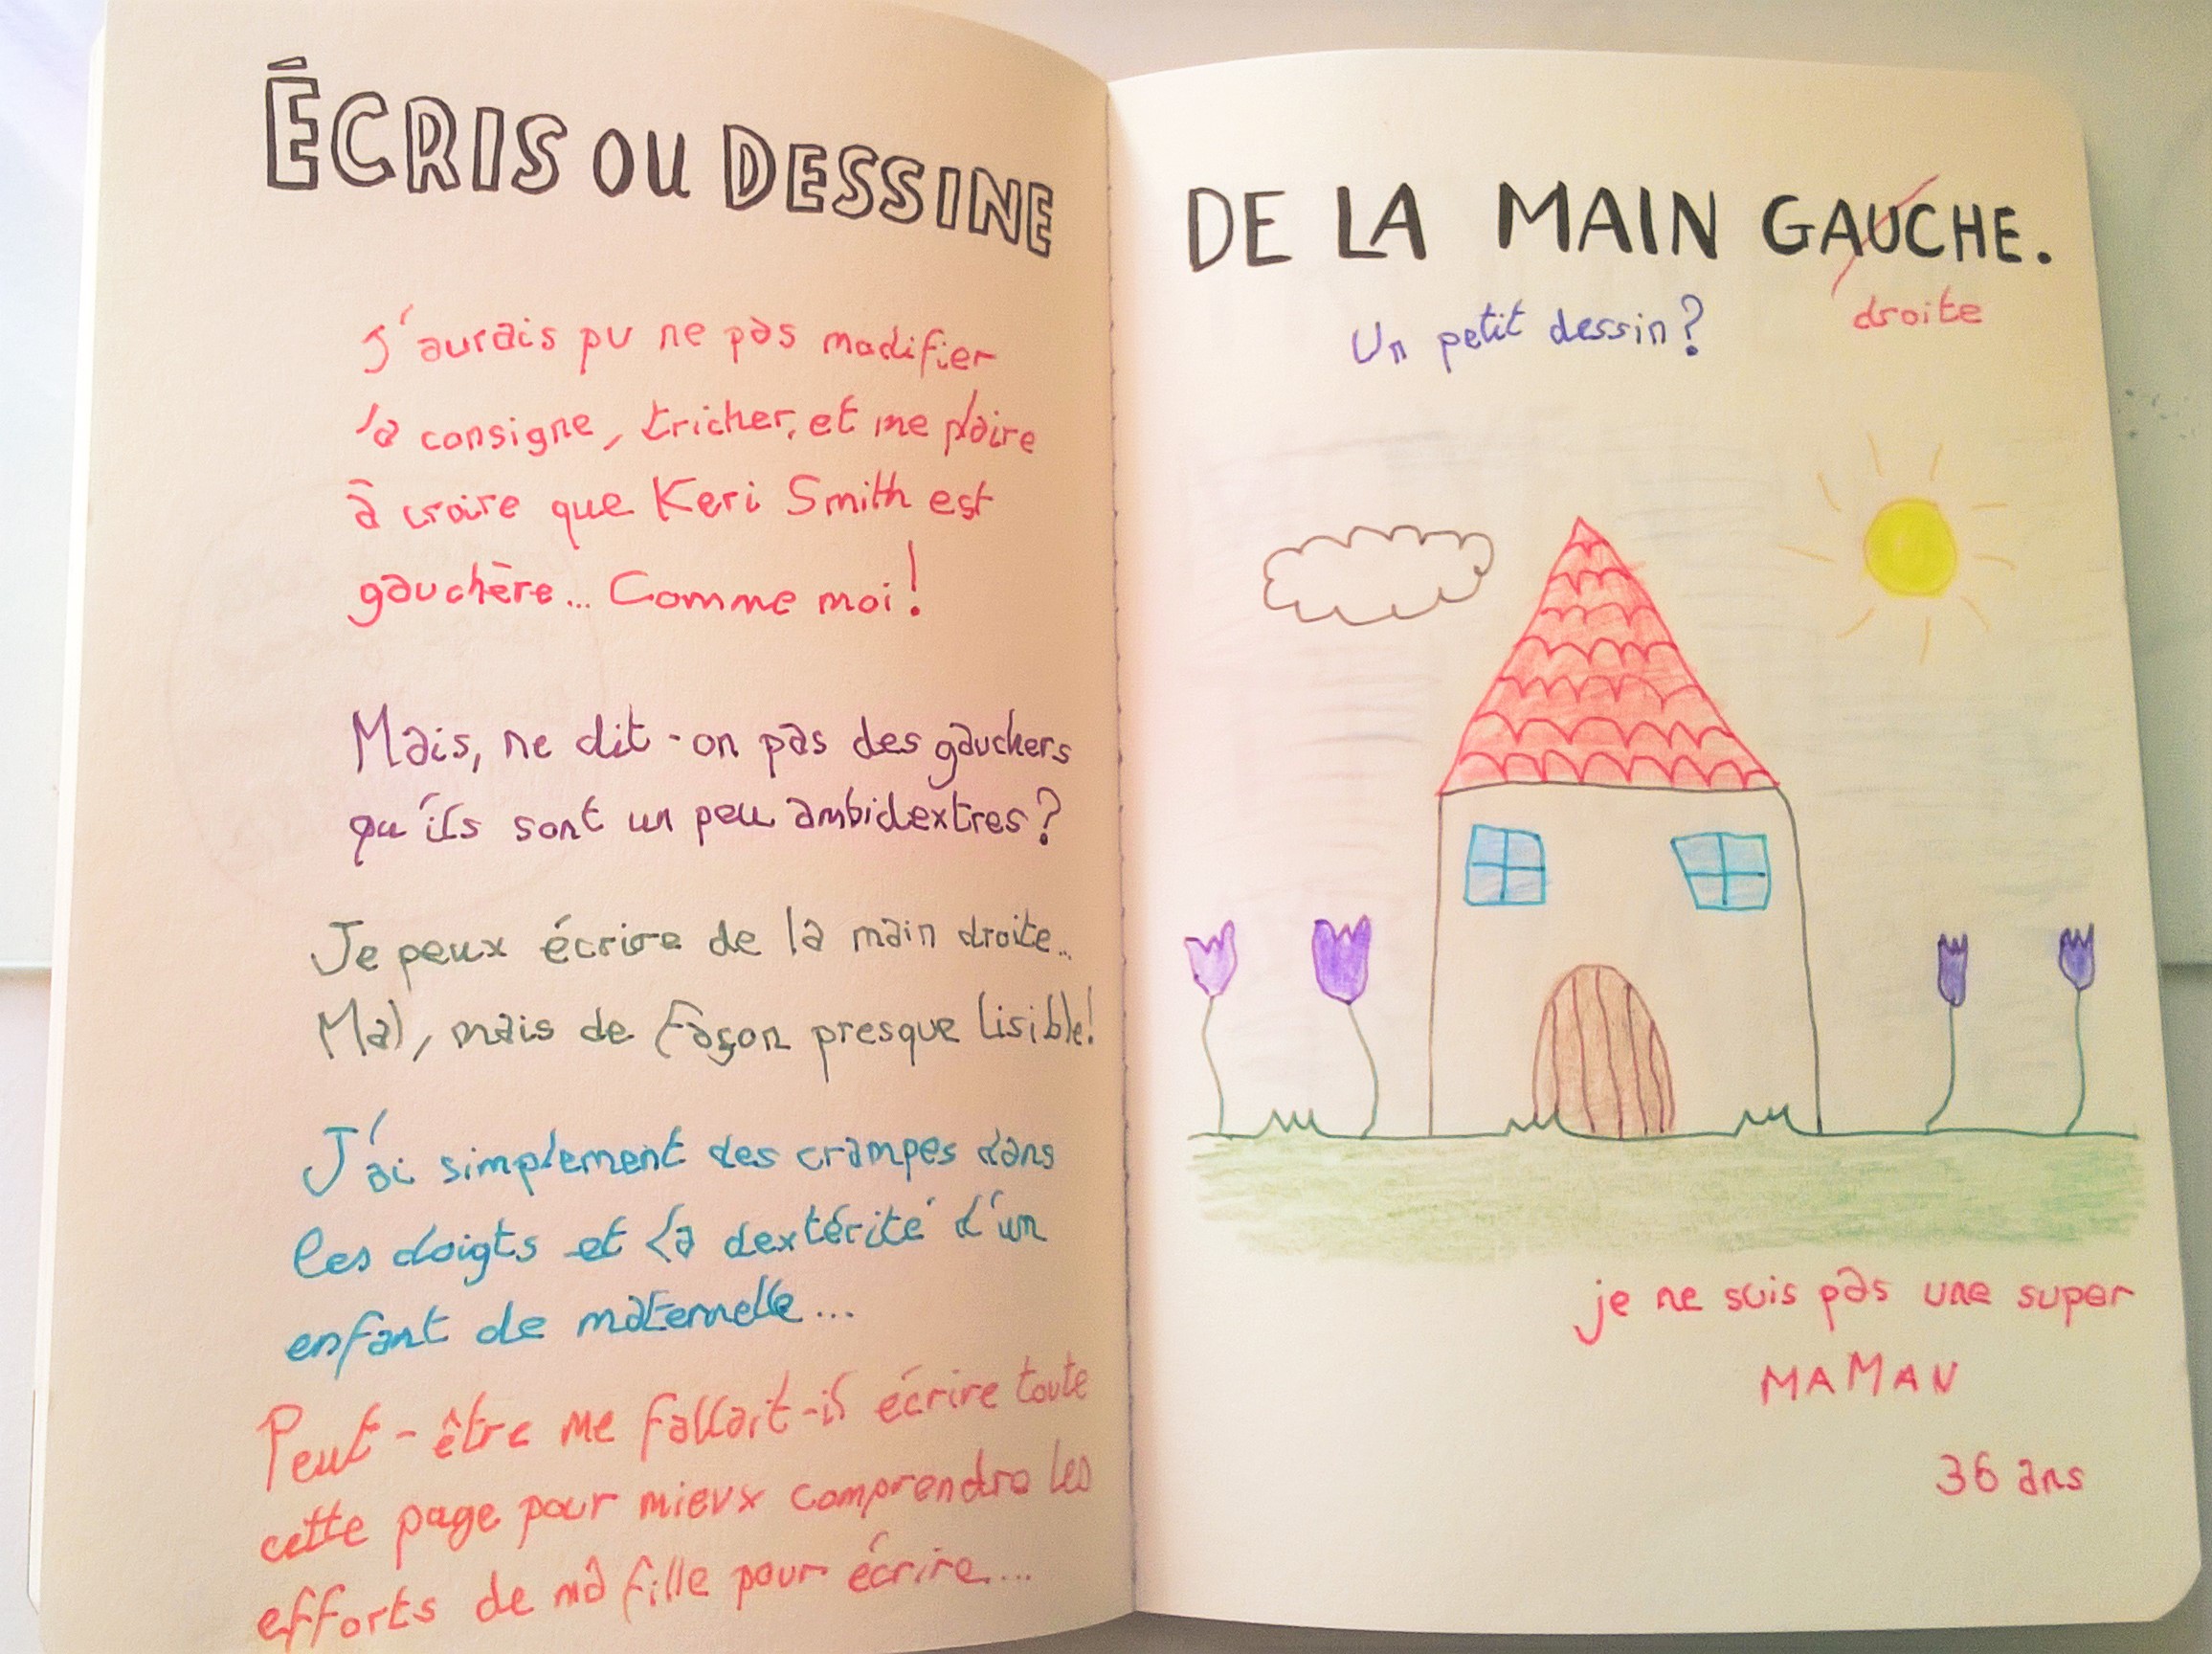 ÉCRIS OU DESSINE
J'aurais pu ne pas modifier
la consigne, tricher, et me plaire
à croire que Keri Smith est
gauchère... Comme moi!
Mais, ne dit-on pas des gauchers
qu'ils sont un peu ambidextres?
Je peux écrire de la main droite..
Mal, mais de façon presque lisible!
J'ai simplement des crampes dans
les doigts et la dextérité d'un
enfant de maternelle...
Peut-être me fallait-il écrire toute
cette page pour mieux comprendre les
efforts de ma fille pour écrire...
DE LA MAIN GAUCHE.
droite
Un petit dessin?
je ne suis pas une super
MAMAN
36 ans